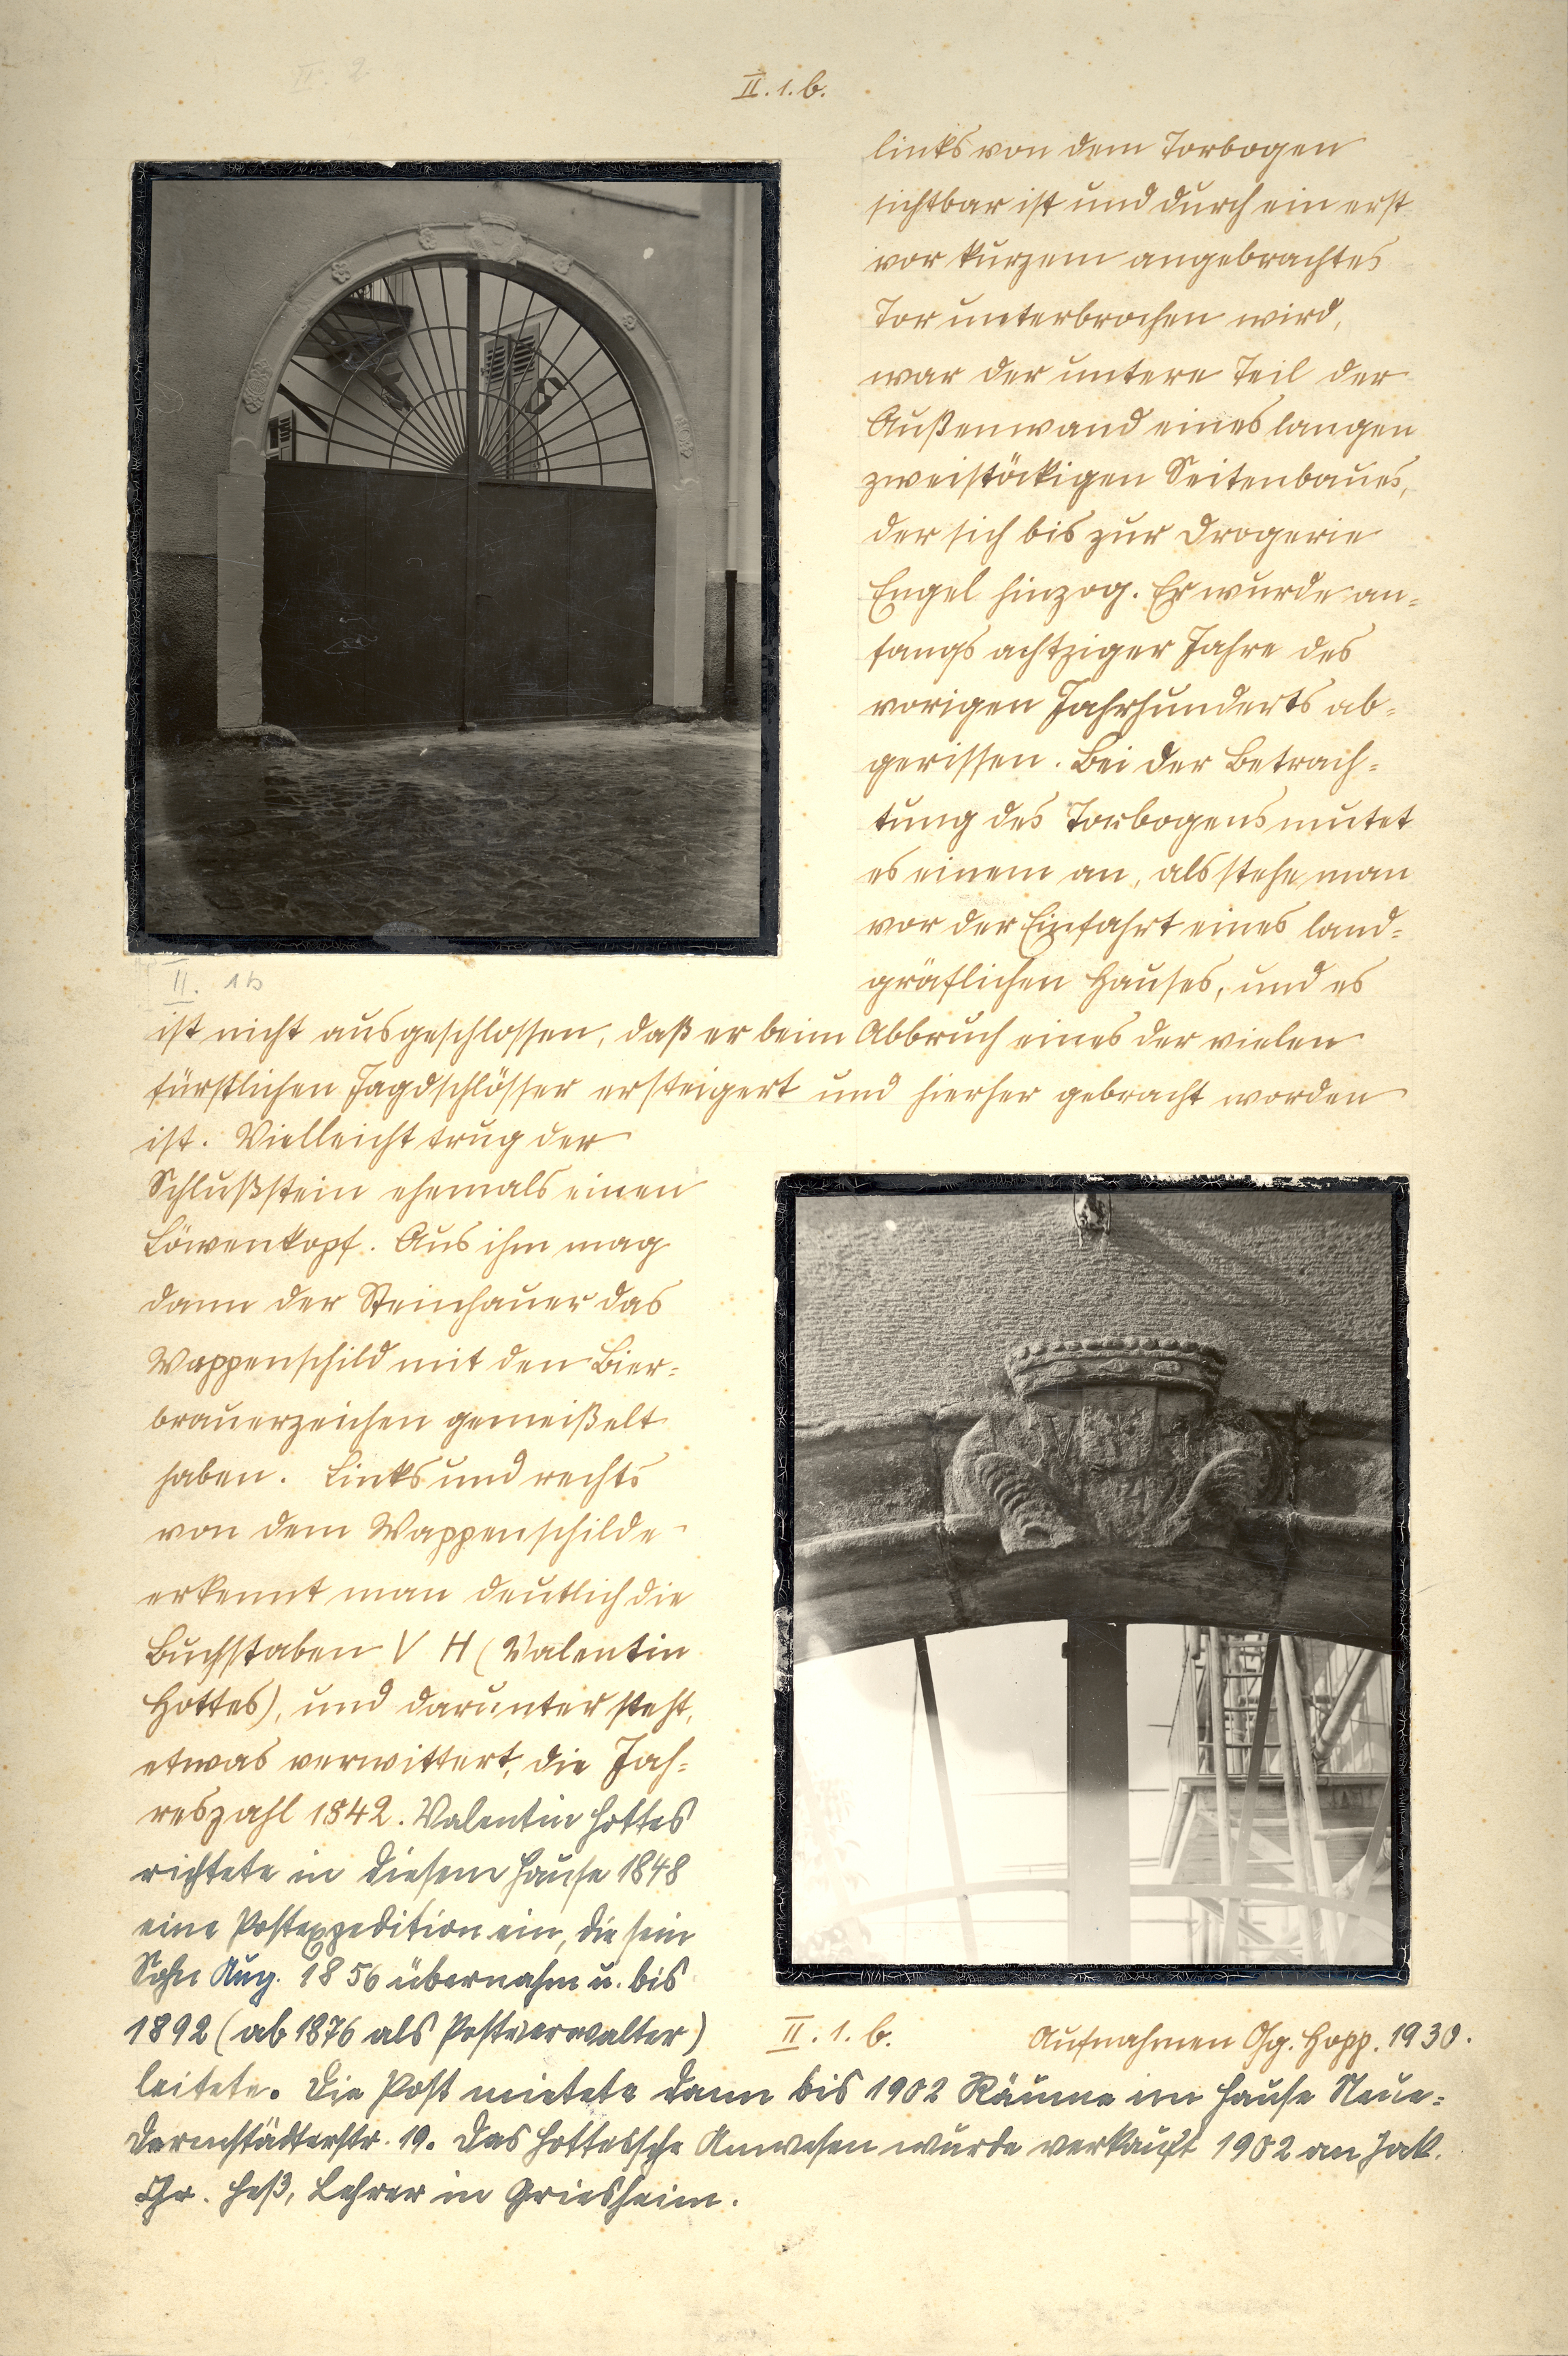 II. 1. b.
links von dem Torbogen
sichtbar ist und durch ein erst
vor kurzem angebrachtes
Tor unterbrochen wird,
war der untere Teil der
Außenwand eines langen
zweistöckigen Seitenbaues,
der sich bis zur Drogerie
Engel hinzog. Er wurde an-
fangs achtziger Jahre des
vorigen Jahrhunderts ab-
gerissen. Bei der Betrach-
tung des Torbogens mutet
es einem an, als stehe man
vor der Einfahrt eines land-
gräflichen Hauses, und es
II. 1b
ist nicht ausgeschlossen, daß er beim Abbruch eines der vielen
fürstlichen Jagdschlösser ersteigert und hierher gebracht worden
ist. Vielleicht trug der
Schlußstein ehemals einen
Löwenkopf. Aus ihm mag
dann der Steinhauer das
Wappenschild mit den Bier-
brauerzeichen gemeißelt
haben. Links und rechts
von dem Wappenschilde
erkennt man deutlich die
Buchstaben V H (Valentin
Hottes), und darunter steht,
etwas verwittert, die Jah-
reszahl 1842. Valentin Hottes
richtete in diesem Hause 1848
eine Postexpedition ein, die sein
Sohn Aug. 1856 übernahm u. bis
1892 (ab 1876 als Postverwalter)
II. 1. b.
Aufnahmen Gg. Hopp. 1930.
leitete. Die Post mietete dann bis 1902 Räume im Hause Neue-
Darmstädterstr. 19. Das Hottessche Anwesen wurde verkauft 1902 an Jak.
Chr. Heß, Lehrer in Griesheim.